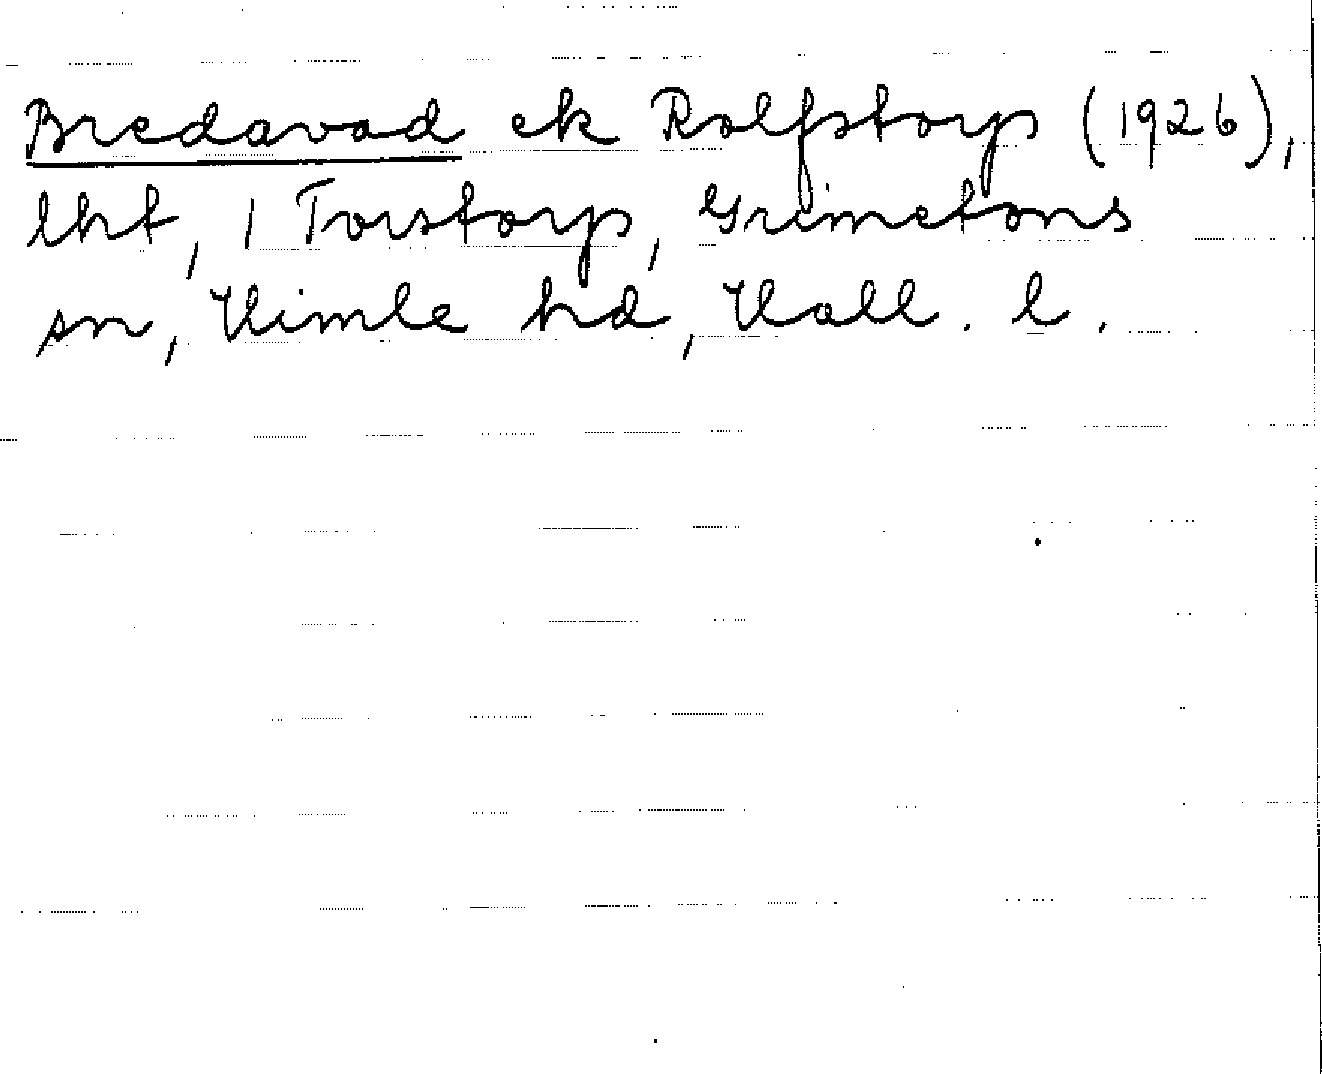 Bredavad ek Rolfstorp (1926),
lht, 1 Torstorp, Grimetons
sn, Himle hd, Hall. l.